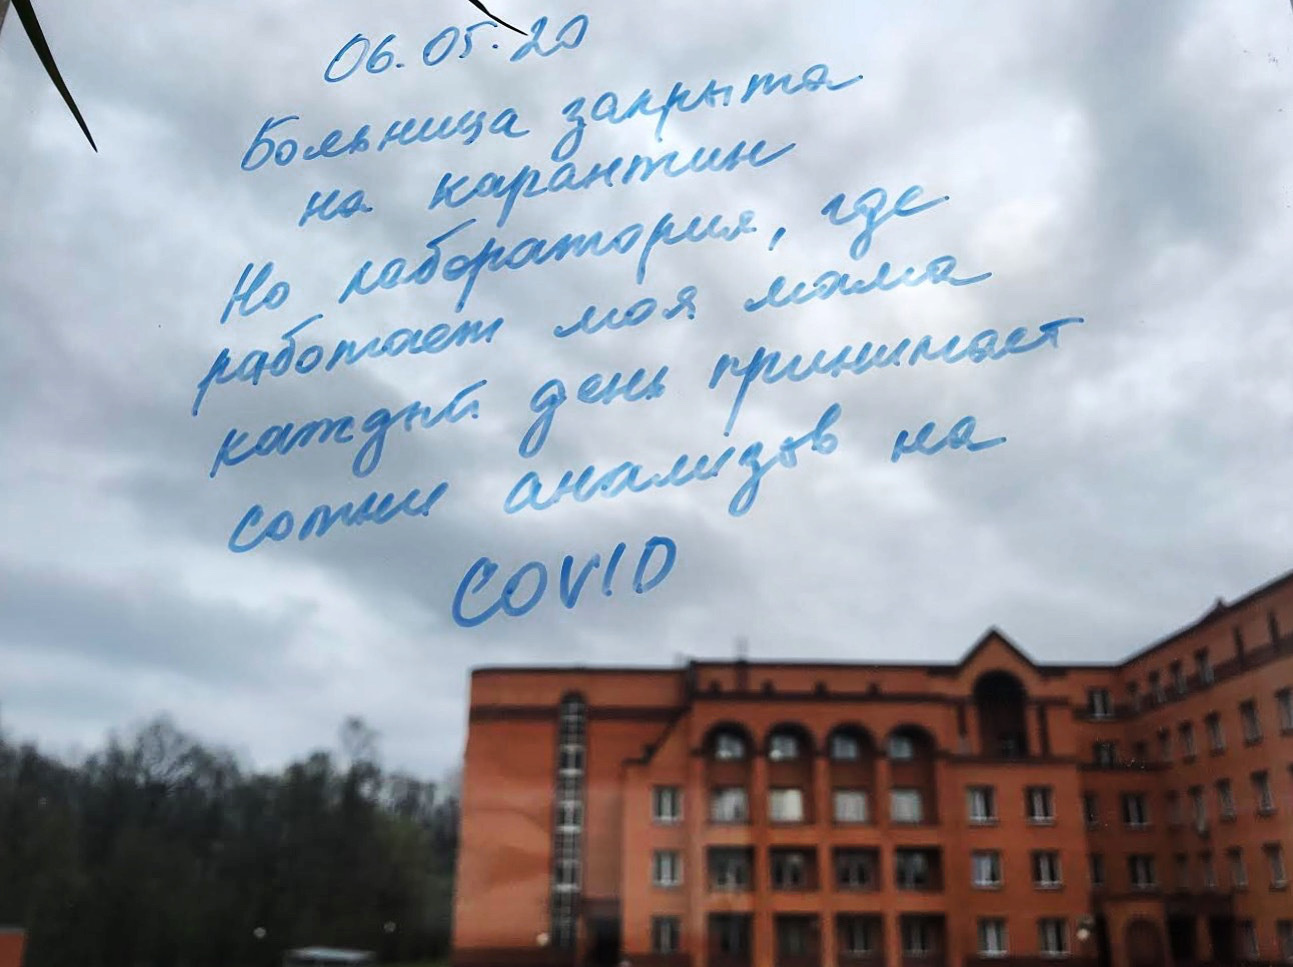 06.05.20
Больница закрыта
на карантин
Но лаборатория, где
работает моя мама
каждый день принимает
сотни анализов на
COVID